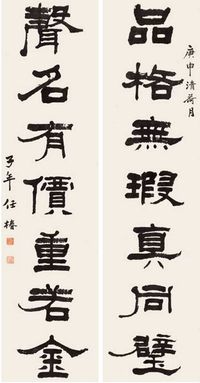 庚申清荷月
品格無瑕真同璧
聲名有價重若金
子年任椿